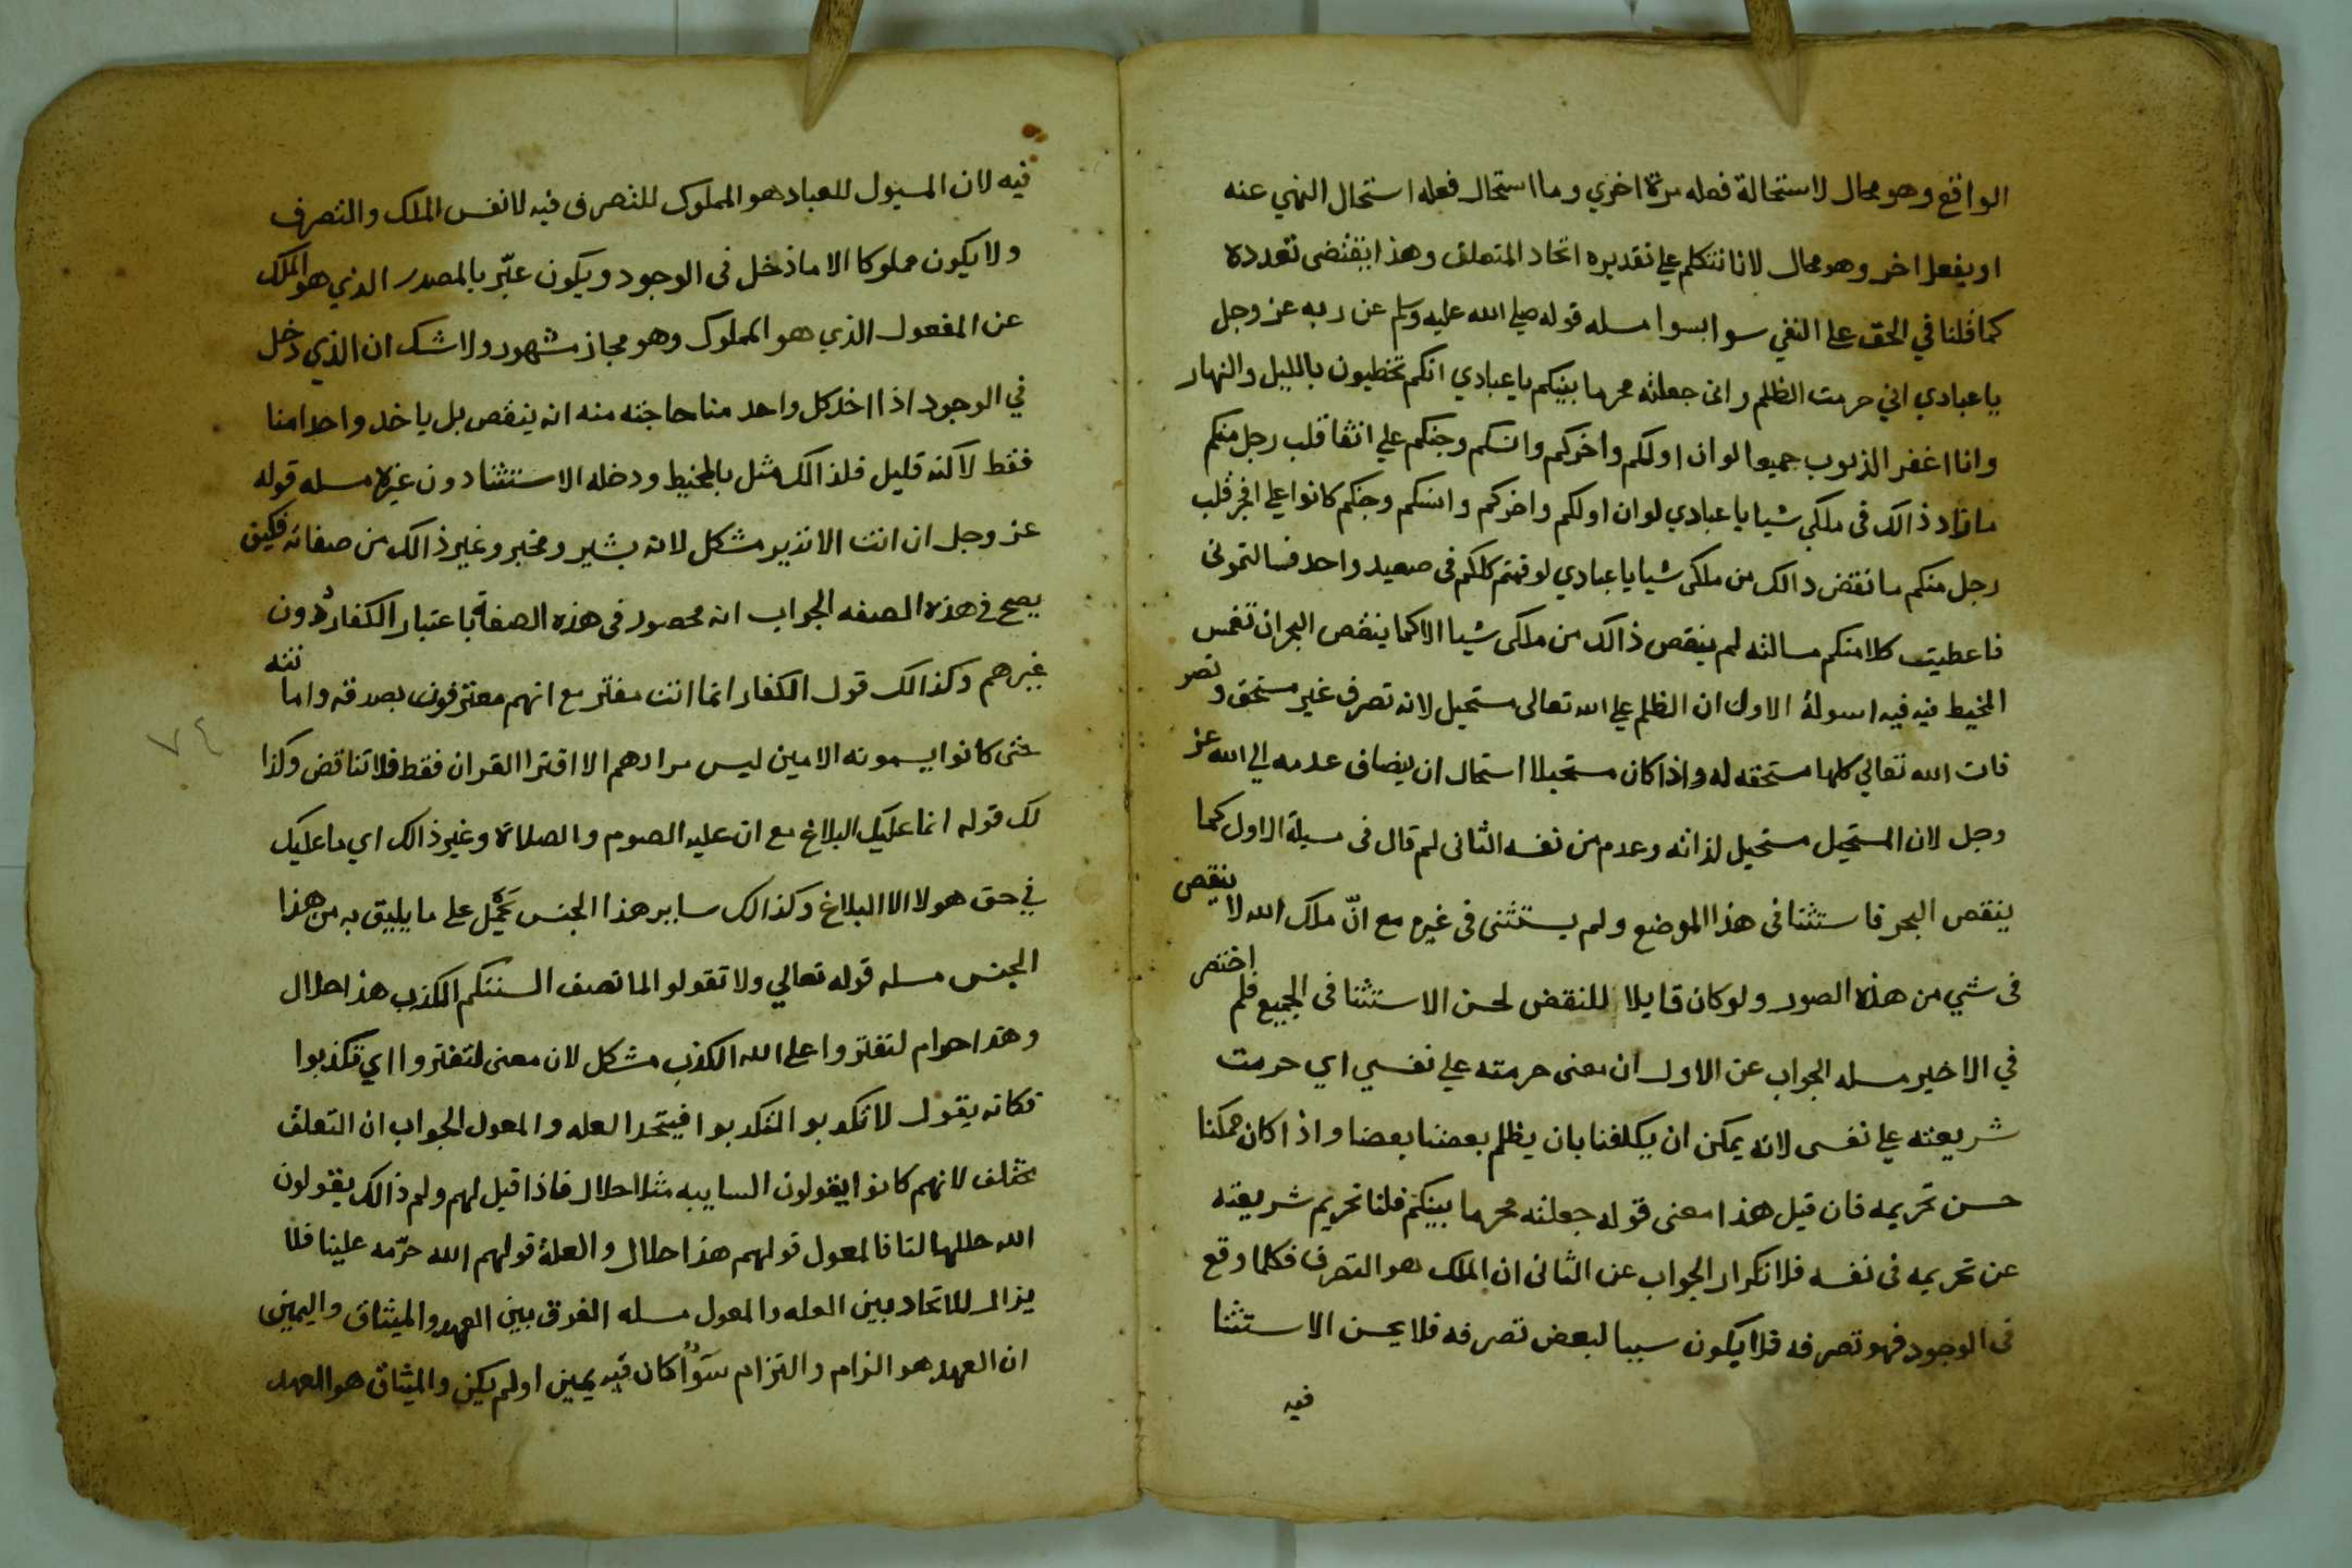 الواقع وهو محال لاستحالة فعله مرة اخري وما استحال فعله استحال النهي عنه
او يفعل اخر وهو محال لانا نتكلم علي تقديره اتحاد المتعلق وهذا يقتضى تعدده
كما قلنا في الحق علي النفي سوا بسوا مسله قوله صلي الله عليه وسلم عن ربه عز وجل
يا عبادي اني حرمت الظلم وانى جعلته محرما بينكم يا عبادي انكم تخطيون بالليل والنهار
وانا اغفر الذنوب جميعا لو ان اولكم واخركم وانسكم وجنكم علي اتقا قلب رجل منكم
ما زاد ذالك فى ملكي شيا يا عبادي لو ان اولكم واخركم وانسكم وجنكم كانوا علي افجر قلب
رجل منكم ما نقض ذالك من ملكى شيا يا عبادي لو قمتم كلكم فى صعيد واحد فسالتمونى
فاعطيت كلا منكم مسالته لم ينقص ذالك من ملكى شيا الا كما ينقص البحر ان تغمس
المخيط فيه فيه اسولة الاول ان الظلم علي الله تعالى مستحيل لانه تصرف غير مستحق وتصر
فات الله تعالي كلها مستحقه له واذا كان مستحيلا استحال ان يضاف عدمه الي الله عز
وجل لان المستحيل مستحيل لذاته وعدم من نفسه الثانى لم قال فى مسيلة الاول كما
ينقص البحر فاستثنا فى هذا الموضع ولم يستثنى فى غيره مع انّ ملك الله لا ينقص
فى شي من هذه الصور ولو كان قابلا للنقض لحسن الاستثنا فى الجميع فلم اختص
في الاخير مسله الجواب عن الاول ان معنى حرمته علي نفسي اي حرمت
شريعته علي نفسى لانه يمكن ان يكلفنا بان يظلم بعضنا بعضا واذا كان ممكنا
حسن تحريمه فان قيل هذا معنى قوله جعلته محرما بينكم قلنا تحريم شريعته
عن تحريمه فى نفسه فلا تكرار الجواب عن الثانى ان الملك هو التصرف فكلما وقع
فى الوجود فهو تصرفه فلا يكون سببا لبعض تصرفه فلا يحسن الاستثنا
فيه
فيه لان المسيول للعباد هو المملوك للتصرف فيه لا نفس الملك والتصرف
ولا يكون مملوكا الا ما دخل فى الوجود ويكون عبّر بالمصدر الذي هو الملك
عن المفعول الذي هو المملوك وهو مجاز مشهور ولا شك ان الذي دخل
في الوجود اذا اخذ كل واحد منا حاجته منه انه ينقص بل ياخذ واحدا منا
فقط لاكنه قليل فلذالك مثل بالمخيط ودخله الاستثنا دون غيره مسله قوله
عز وجل ان انت الا نذير مشكل لانه بشير ومخبر وغير ذالك من صفاته فكيف
يصح في هذه الصفه الجواب انه محصور فى هذه الصفة باعتبار الكفار دون
غيرهم وكذالك قول الكفار انما انت مفتر مع انهم معترفون بصدقه وامانته
حتى كانوا يسمونه الامين ليس مرادهم الا افترا القران فقط فلا تناقض وكذا
لك قوله انما عليك البلاغ مع ان عليه الصوم والصلاة وغير ذالك اي ما عليك
في حق هولا الا البلاغ وكذالك ساير هذا الجنس يحمل على ما يليق به من هذا
الجنس مسله قوله تعالي ولا تقولوا لما تصف السنتكم الكذب هذا حلال
وهذا حرام لتفتروا على الله الكذب مشكل لان معنى لتفتروا اي تكذبوا
فكانه يقول لا تكذبو التكذبوا فيتحد العله والمعول الجواب ان التعلق
مختلف لانهم كانوا يقولون السايبه مثلا حلال فاذا قيل لهم ولم ذالك يقولون
الله حللها لنا فالمعول قولهم هذا حلال والعلة قولهم الله حرّمه علينا فلا
يزال للاتحاد بين العله والمعول مسله الفرق بين العهد والميثاق واليمين
ان العهد هو الزام والتزام سوآ كان فيه يمين او لم يكن والميثاق هو العهد
٧٤